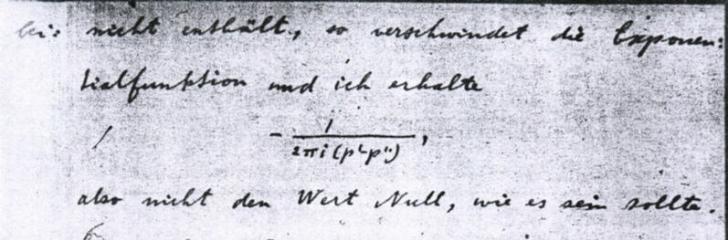 nicht enthält, so verschwindet die Exponen=
tialfunktion und ich erhalte
- 1 / 2πi(p'-p''),
also nicht den Wert Null, wie es sein sollte.